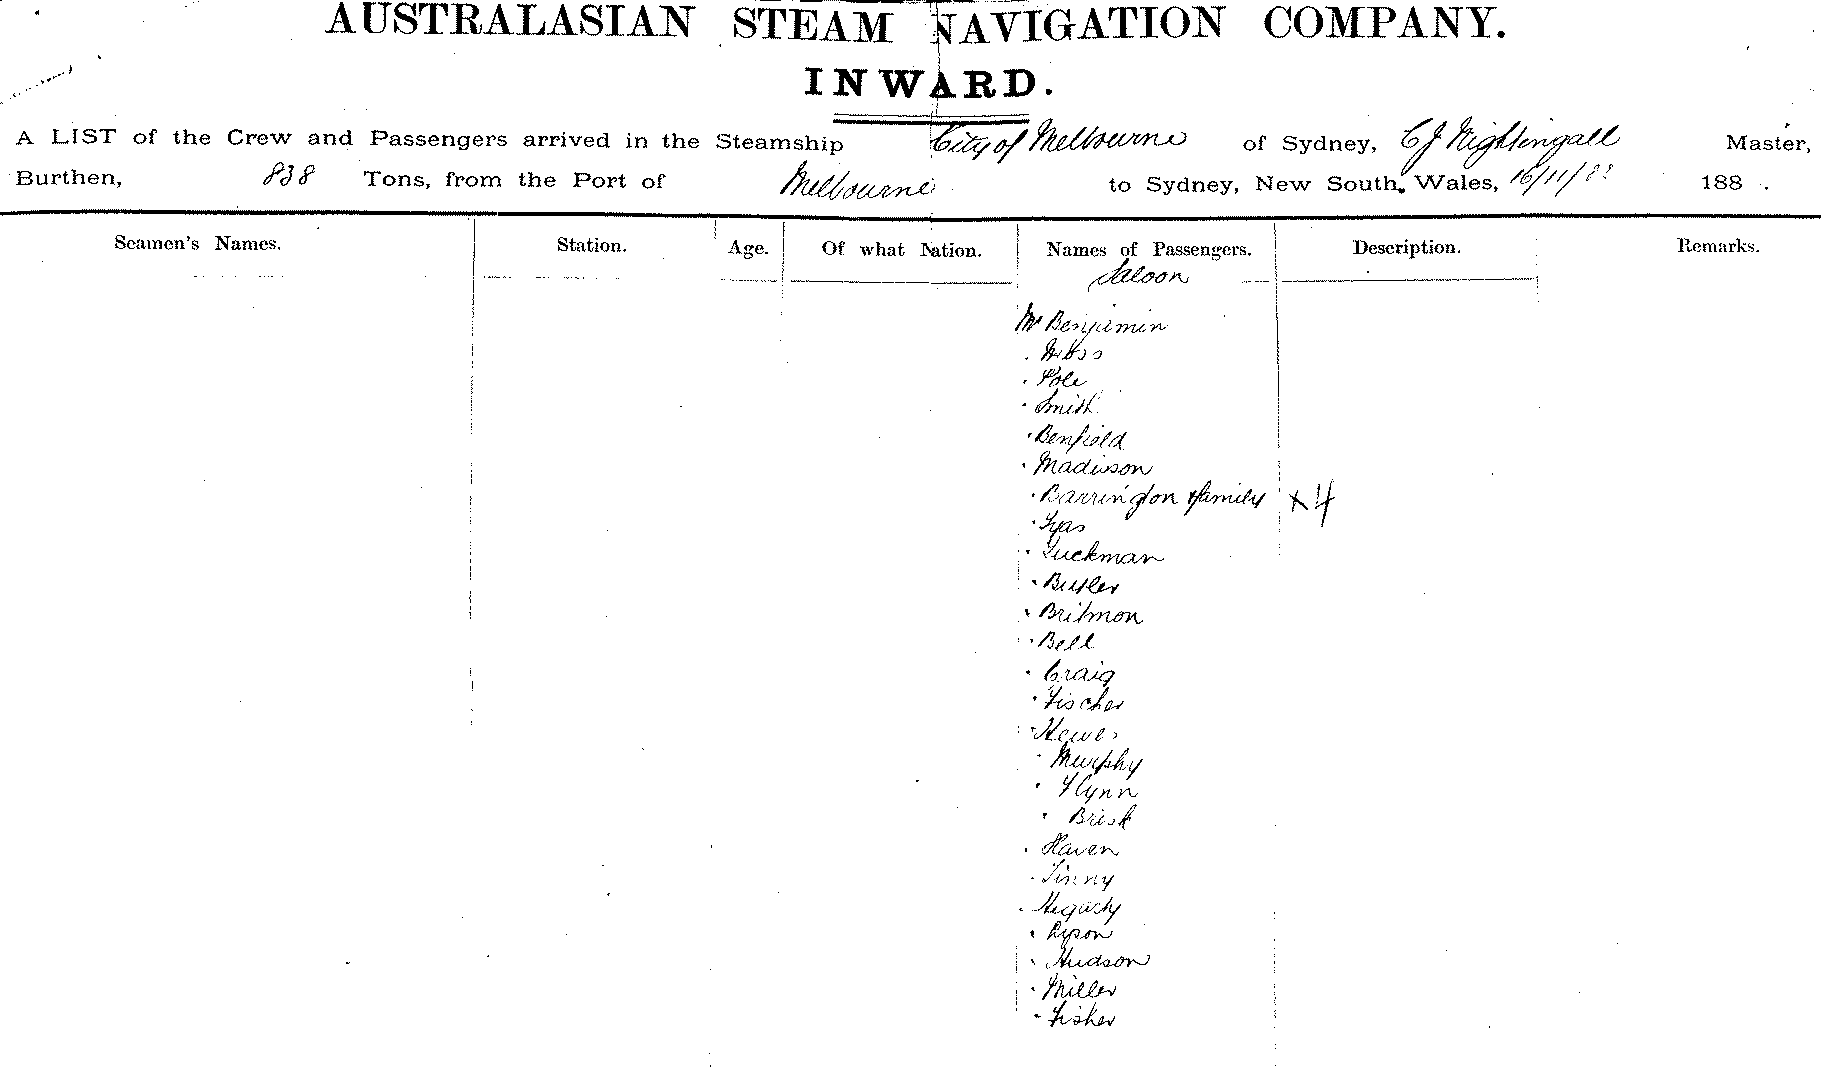 AUSTRALASIAN STEAM NAVIGATION COMPANY.
INWARD.
A LIST of the Crew and Passengers arrived in the Steamship City of Melbourne of Sydney, C J Nightingall Master,
Burthen, 838 Tons, from the Port of Melbourne to Sydney, New South Wales, 16/11/ 188 .
Seamen's Names. Station. Age. Of what Nation. Names of Passengers. Description. Remarks.
Saloon
Mr Benjamin
Pole
Smith
Benfield
Madisson
Barrington & family x 4
Luckman
Butler
Britmon
Bell
Craig
Fischer
Hewes
Murphy
Flynn
Brisk
Haven
Finny
Hegarty
Hudson
Miller
Fisher